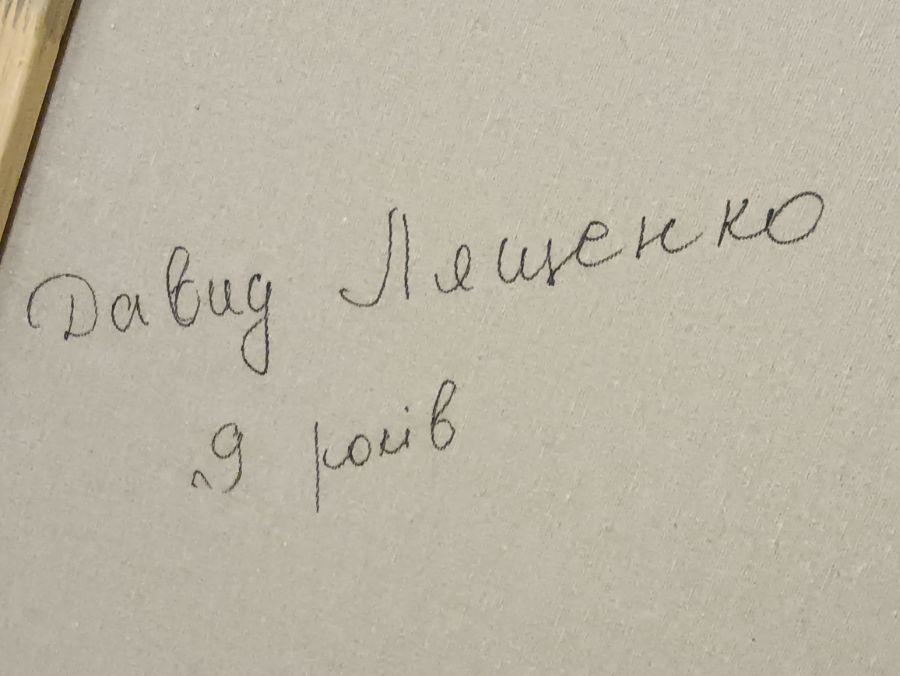 Давид Лященко
9 років